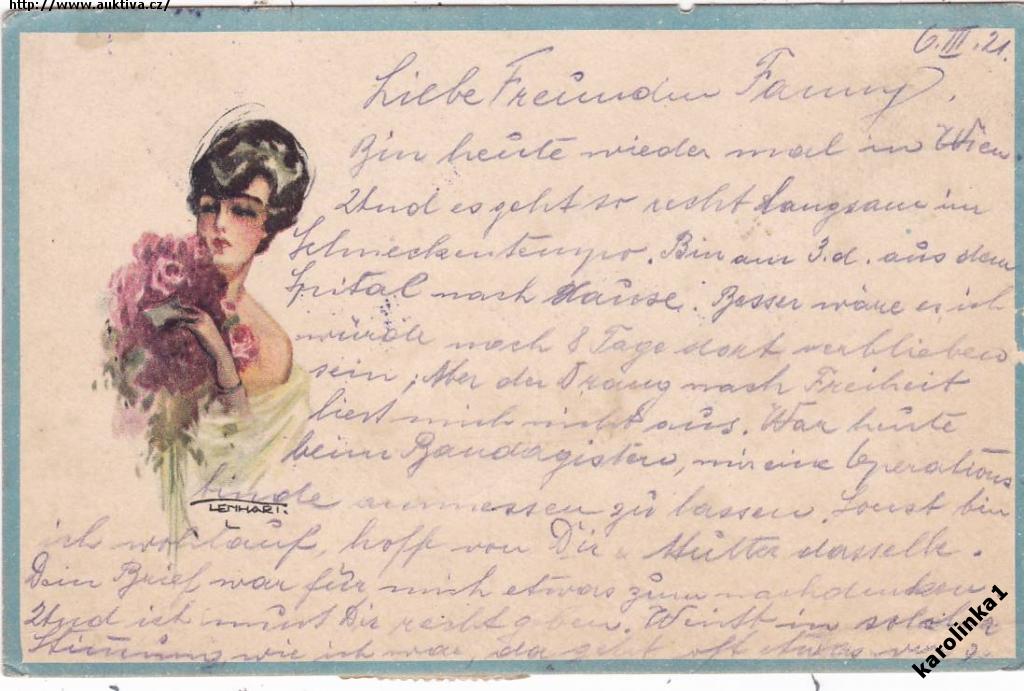 http://www.auktiva.cz/
6.III.21.
Liebe Freundin Fanny,
Bin heute wieder mal in Wien
Und es geht so recht langsam im
Schneckentempo. Bin am 3.d. aus dem
Spital nach Hause. Besser wäre es ich
würde noch 8 Tage dort verblieben
sein, Aber der Drang nach Freiheit
liest mich nicht aus. War heute
beim Bandagisten, mir eine Operations
binde anmessen zu lassen. Sonst bin
LENHART.
L
ich wohlauf, hoff von Dir u Mutter dasselb.
Dein Brief war für mich etwas zum nachdenken
Und ich muss Dir recht geben. Weist in solcher
Stimmung wie ich war, da geht oft etwas
karolinka1